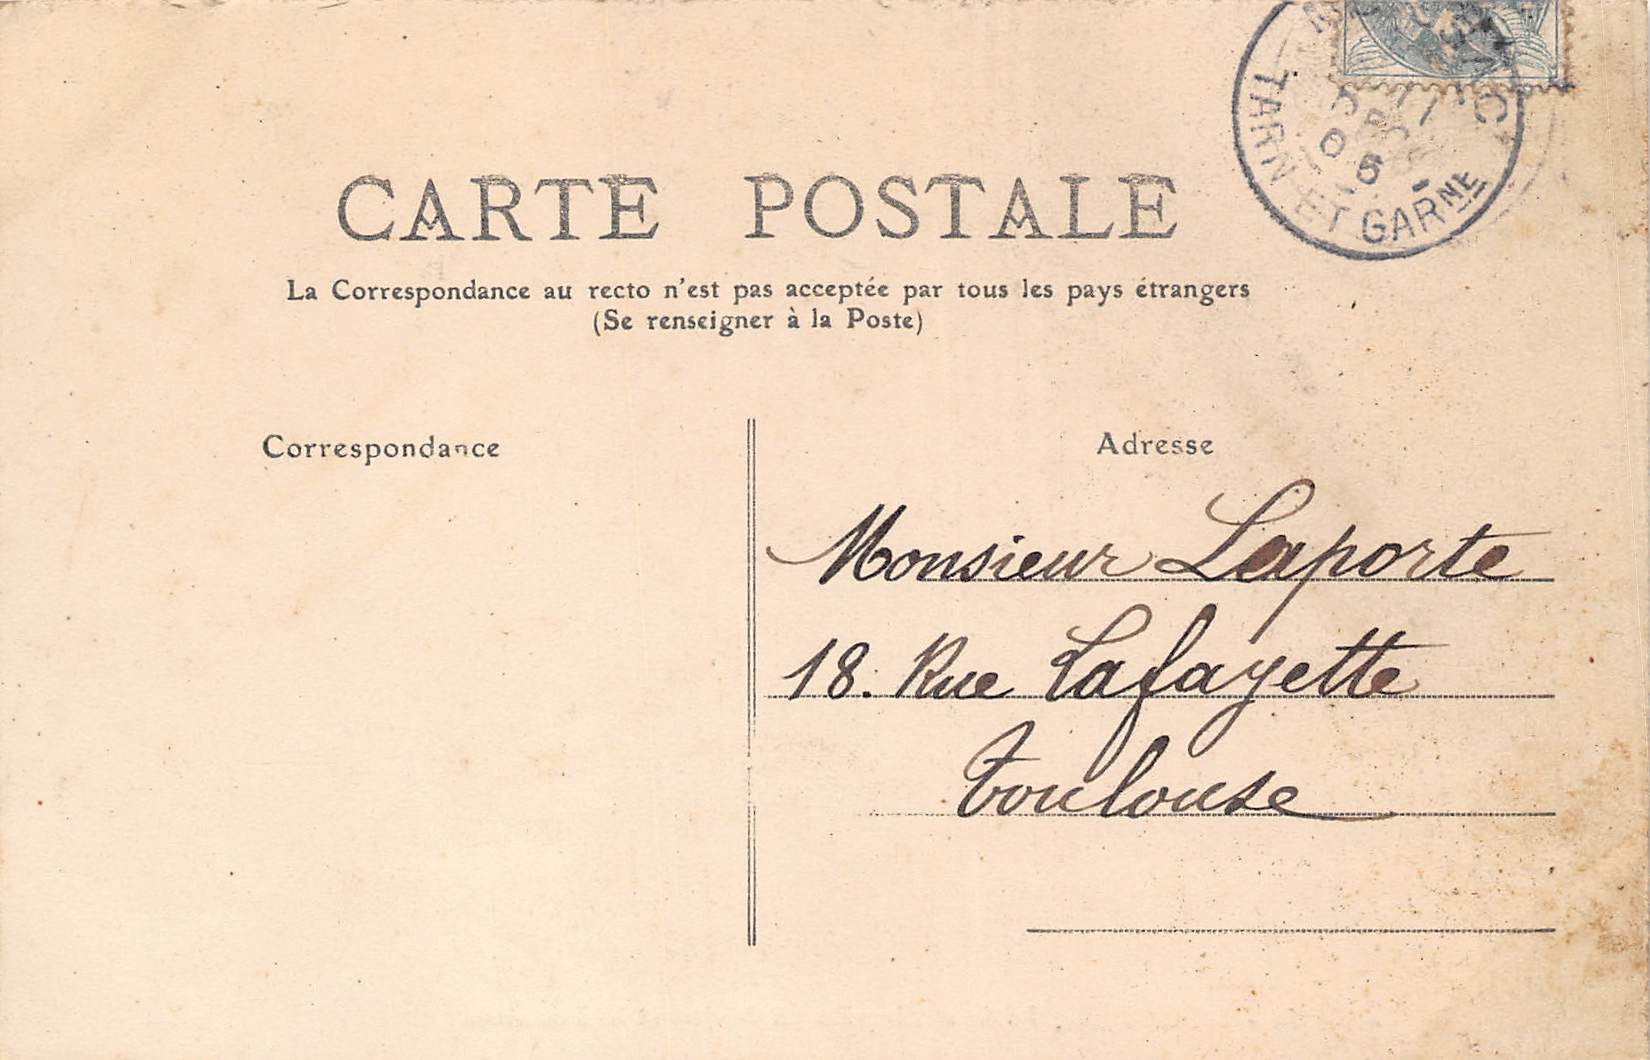 CARTE POSTALE
La Correspondance au recto n'est pas acceptée par tous les pays étrangers
(Se renseigner à la Poste)
Correspondance
Adresse
Monsieur Laporte
18. Rue Lafayette
Toulouse
TARN ET GARNE
05